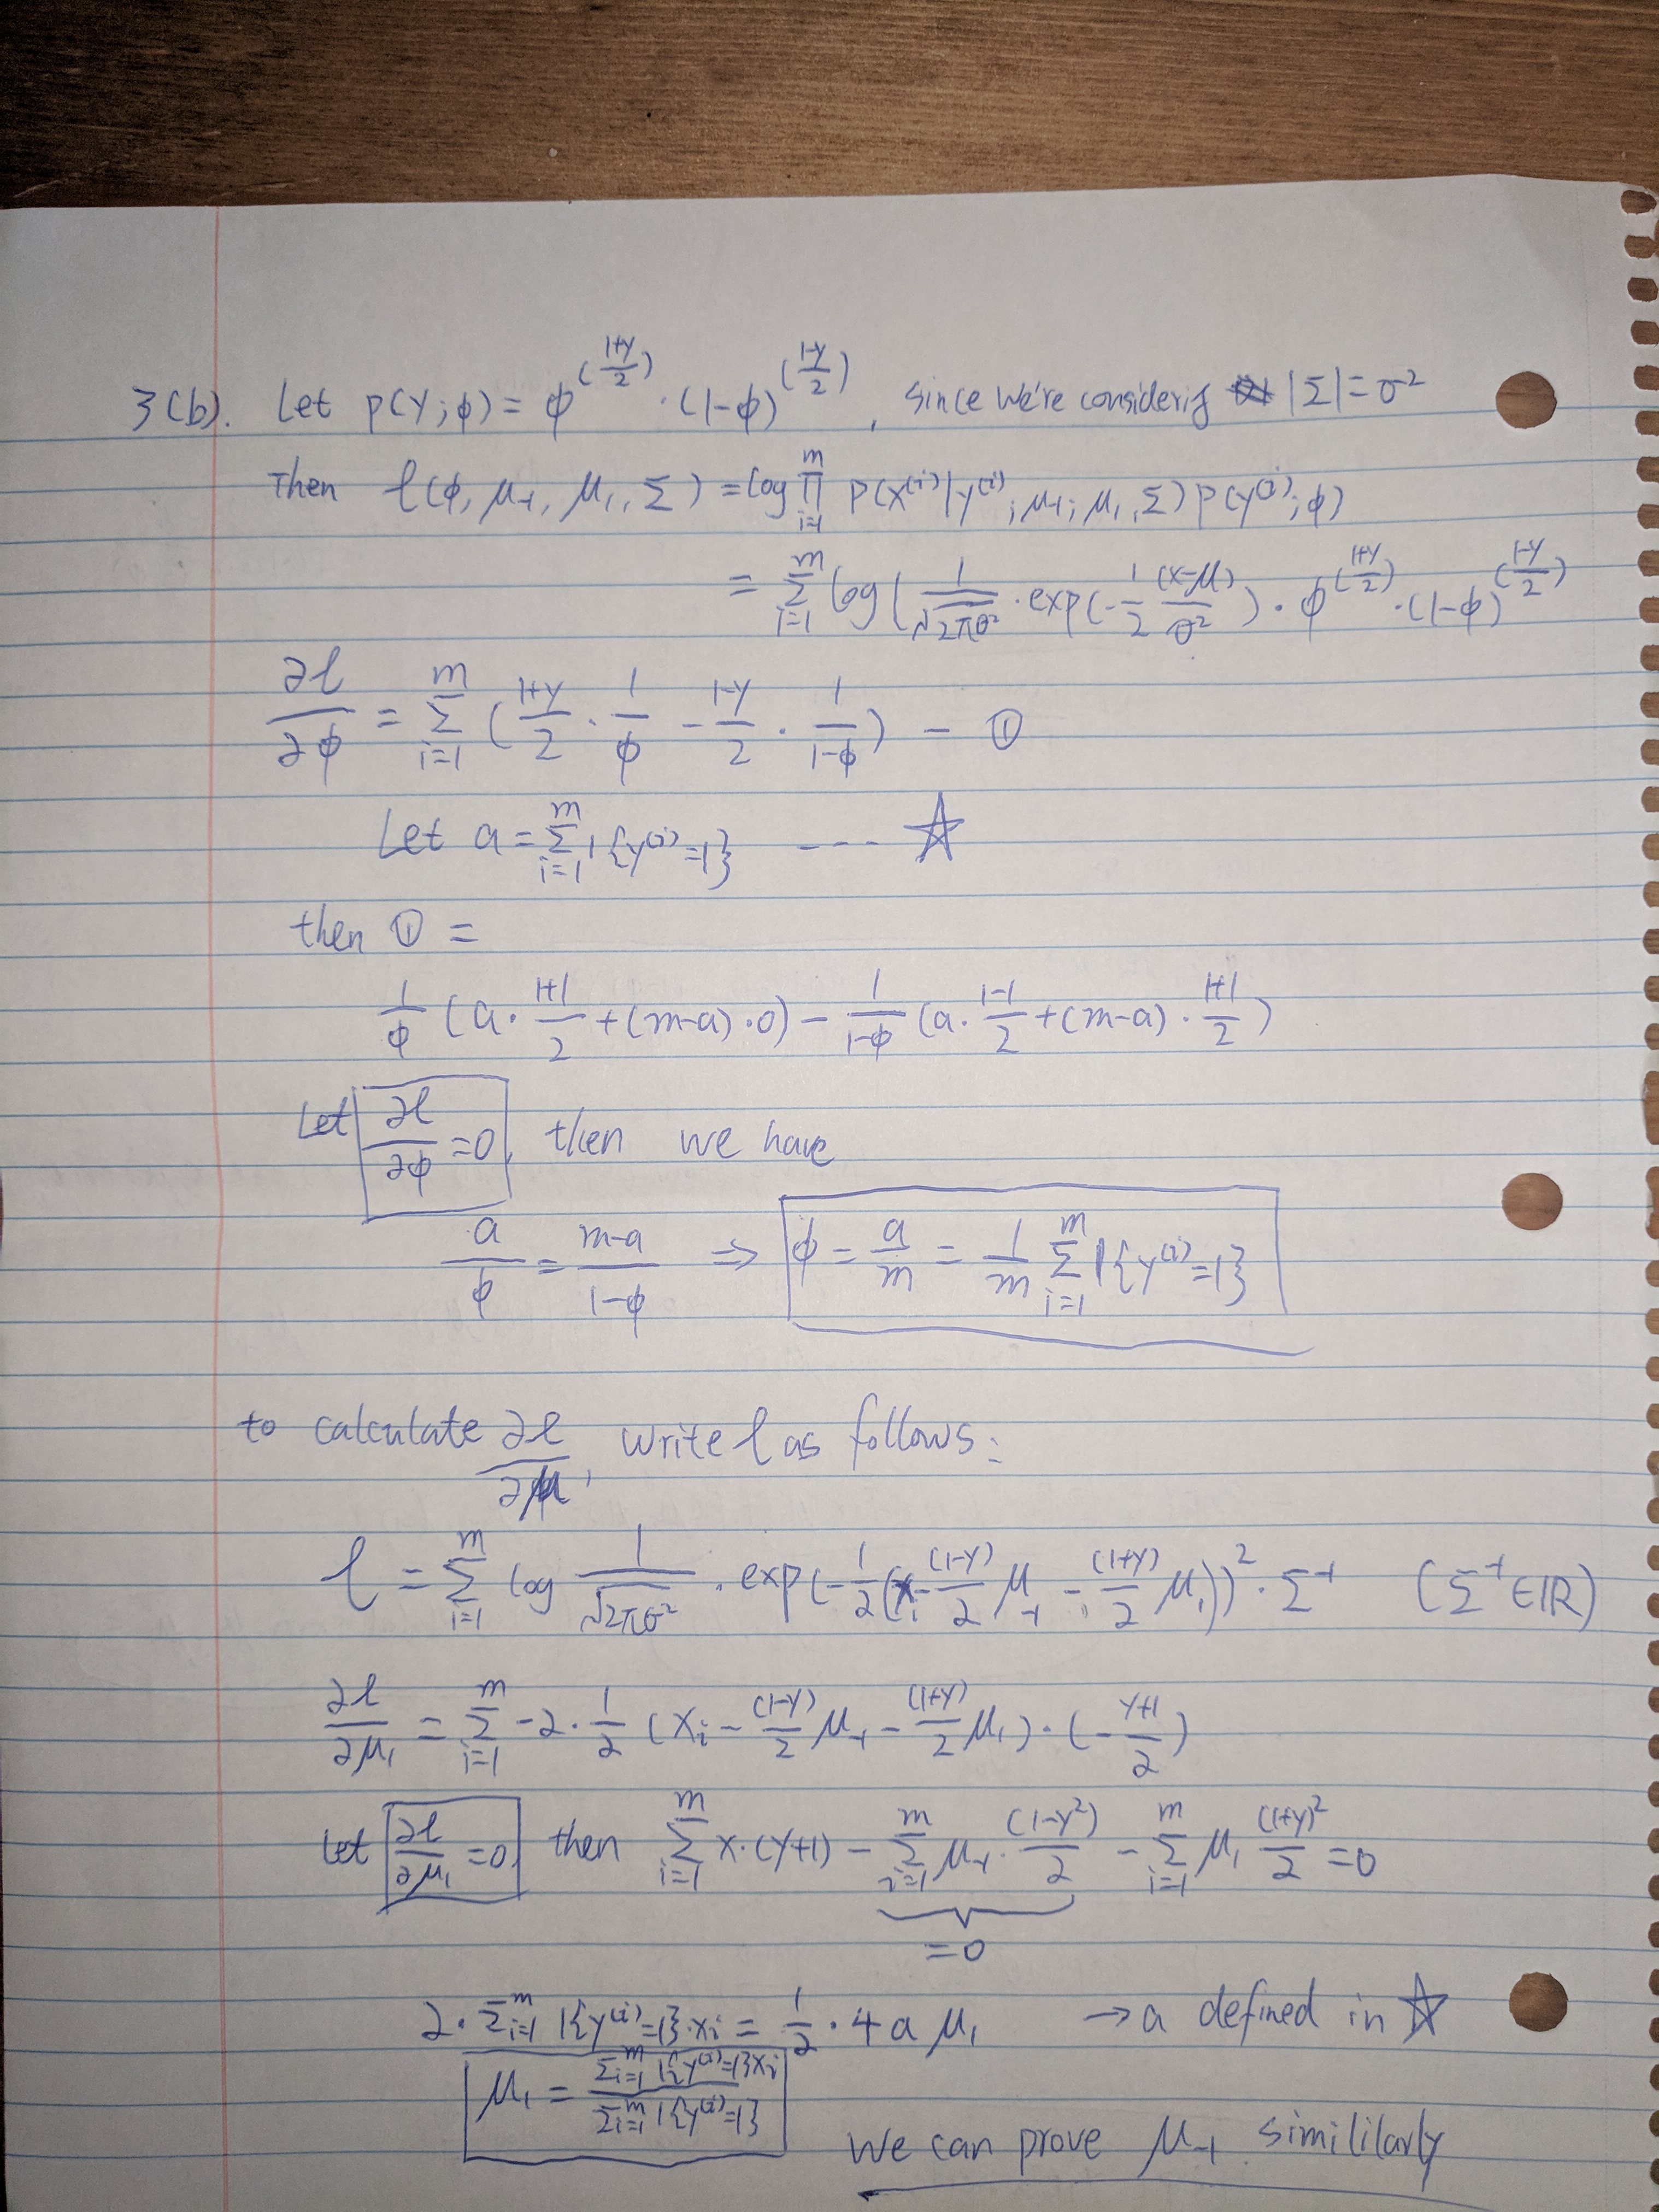 3(b). Let p(y;φ) = φ^((1+y)/2) · (1-φ)^((1-y)/2), since we're considerig |Σ| = σ²
Then ℓ(φ, μ₋₁, μ₁, Σ) = log ∏_{i=1}^{m} p(x^(i)|y^(i); μ₋₁; μ₁, Σ) p(y^(i); φ)
= Σ_{i=1}^{m} log( 1/√(2πσ²) · exp(-1/2 (x-μ)/σ²) · φ^((1+y)/2) · (1-φ)^((1-y)/2)
∂ℓ/∂φ = Σ_{i=1}^{m} ( (1+y)/2 · 1/φ - (1-y)/2 · 1/(1-φ) ) - ①
Let a = Σ_{i=1}^{m} 1{y^(i)=1} --- ☆
then ① =
1/φ (a · (1+1)/2 + (m-a)·0) - 1/(1-φ) (a · (1-1)/2 + (m-a) · (1+1)/2)
Let ∂ℓ/∂φ = 0, then we have
a/φ = (m-a)/(1-φ) ⇒ φ = a/m = 1/m Σ_{i=1}^{m} 1{y^(i)=1}
to calculate ∂ℓ/∂μ, write ℓ as follows:
ℓ = Σ_{i=1}^{m} log 1/√(2πσ²) · exp(-1/2 (x_i - (1-y)/2 μ₋₁ - (1+y)/2 μ₁))² · Σ⁻¹ (Σ⁻¹ ∈ ℝ)
∂ℓ/∂μ₁ = Σ_{i=1}^{m} -2 · 1/2 (x_i - (1-y)/2 μ₋₁ - (1+y)/2 μ₁) · (- (y+1)/2)
Let ∂ℓ/∂μ₁ = 0, then Σ_{i=1}^{m} x·(y+1) - Σ_{i=1}^{m} μ₋₁ · (1-y²)/2 - Σ_{i=1}^{m} μ₁ (1+y)²/2 = 0
= 0
2 · Σ_{i=1}^{m} 1{y^(i)=1}·x_i = 1/2 · 4 a μ₁ → a defined in ☆
μ₁ = Σ_{i=1}^{m} 1{y^(i)=1}x_i / Σ_{i=1}^{m} 1{y^(i)=1}
We can prove μ₋₁ simililarly